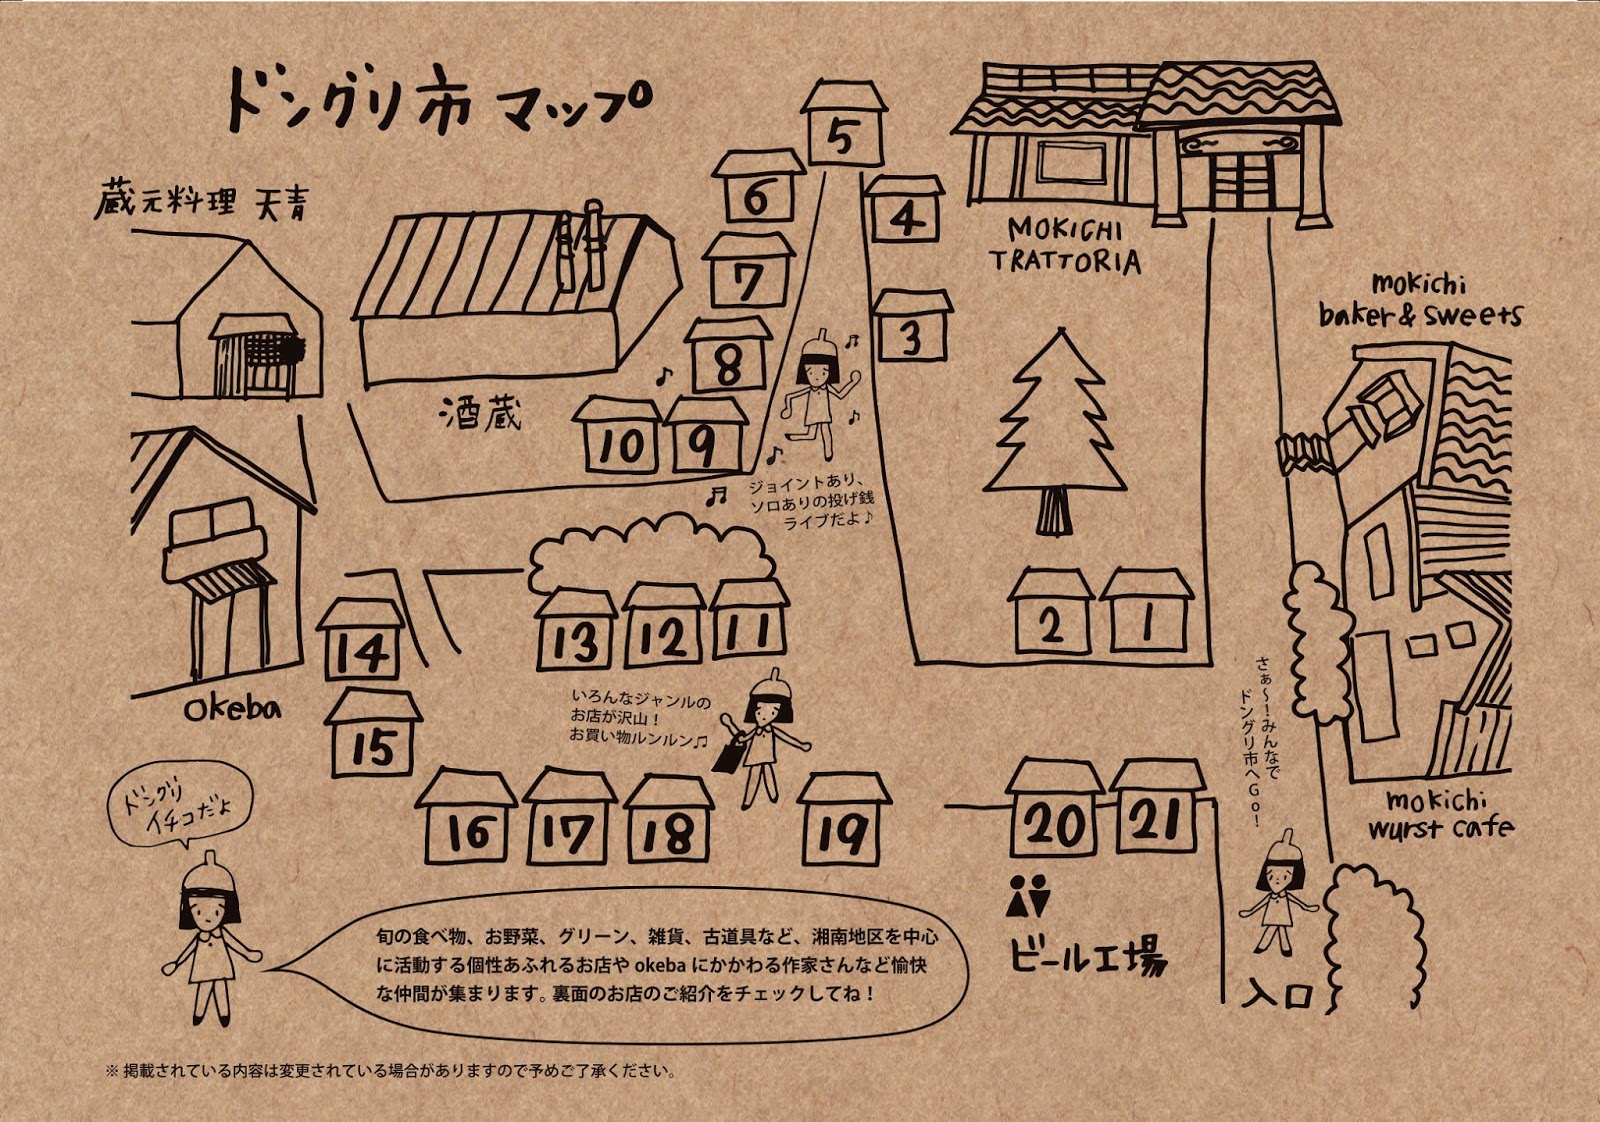 ドングリ市 マップ
蔵元料理 天青
5
6
4
7
3
8
10
9
酒蔵
MOKICHI
TRATTORIA
mokichi
baker & sweets
ジョイントあり、
ソロありの投げ銭
ライブだよ♪
2
1
13
12
11
14
15
okeba
いろんなジャンルの
お店が沢山！
お買い物ルンルン♫
さぁ〜！みんなで
ドングリ市へGo！
16
17
18
19
20
21
mokichi
wurst cafe
ドングリ
イチコだよ
ビール工場
入口
旬の食べ物、お野菜、グリーン、雑貨、古道具など、湘南地区を中心
に活動する個性あふれるお店や okeba にかかわる作家さんなど愉快
な仲間が集まります。裏面のお店のご紹介をチェックしてね！
※ 掲載されている内容は変更されている場合がありますので予めご了承ください。